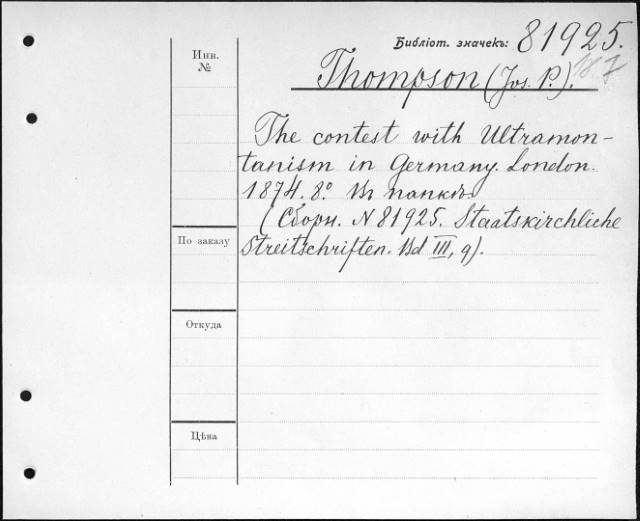 Библіот. значекъ: 81925.
Инв.
№
Thompson (Jos. P.).
The contest with Ultramon-
tanism in Germany. London.
1874. 8.° Въ папкѣ.
(Сборн. N 81925. Staatskirchliche
По заказу
Streitschriften. Bd III, 9).
Откуда
Цѣна